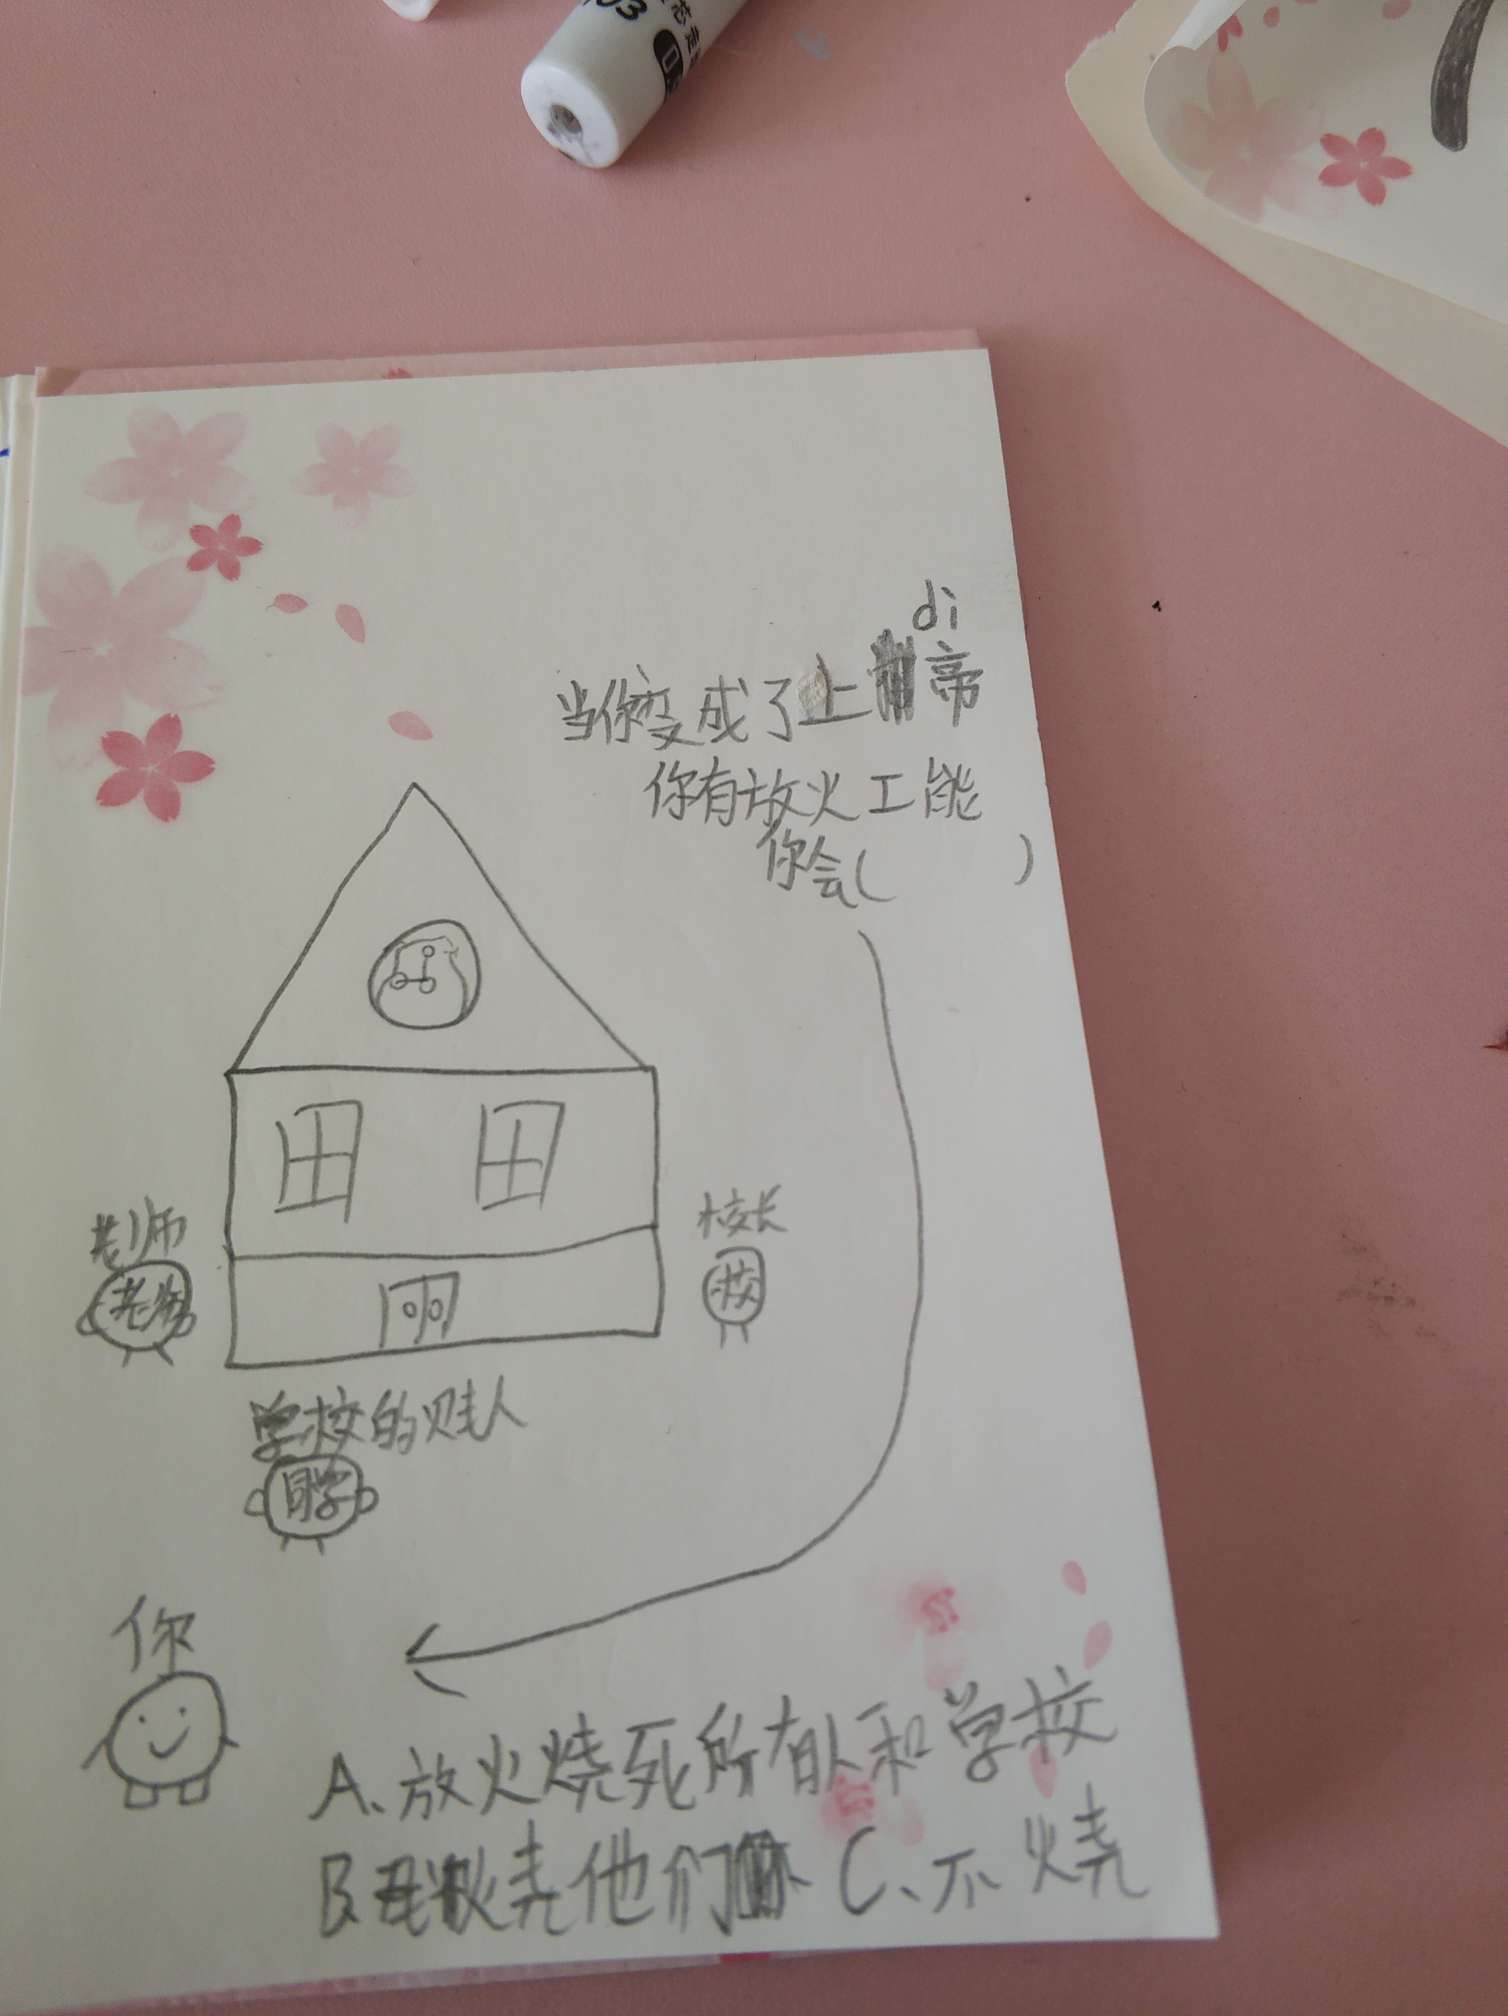 当你变成了上帝
di
你有放火工能
你会( )
老师
老师
校长
校
学校的贱人
同学
你
A、放火烧死所有人和学校
B 烧他们
C、不烧